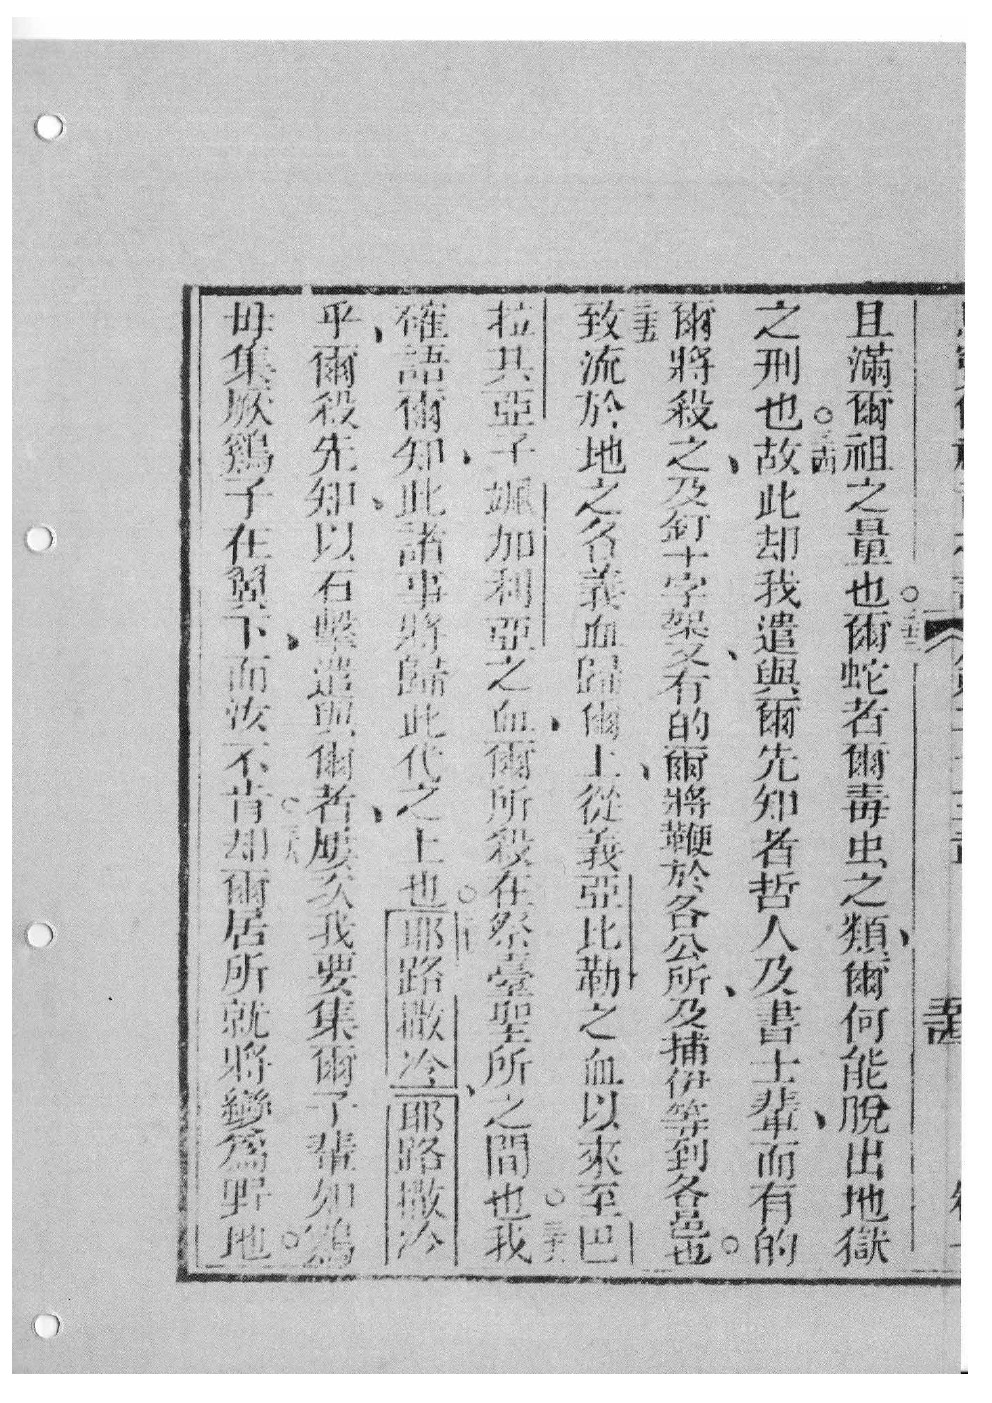 且滿爾祖之量也○三十三爾蛇者爾毒虫之類、爾何能脫出地獄
之刑也○三十四故此却我遣與爾先知者哲人及書士輩、而有的
爾將殺之、及釘十字架、又有的爾將鞭於各公所、及捕伊等到各邑也○
三十五致流於地之各義血歸爾上、從義亞比勒之血以來至巴
拉其亞子𬲜加利亞之血、爾所殺在祭臺聖所之間也○三十六我
確語爾知、此諸事將歸此代之上也○耶路撒冷、耶路撒冷
乎、爾殺先知、以石擊遣與爾者、屢次我要集爾子輩如鷄
母集厥鷄子在翼下、而汝不肯○三十八却爾居所就將變爲野地○